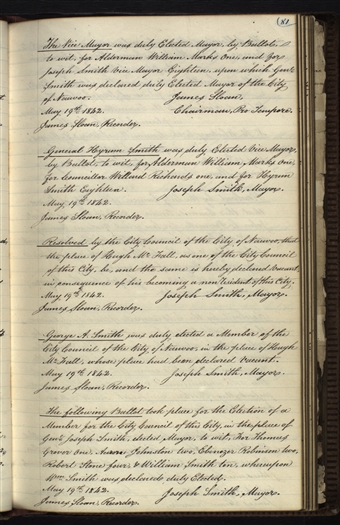 (81)
The Vice Mayor was duly Elected Mayor, by Ballot,
to wit, for Alderman William Marks One, and for
Joseph Smith Vice Mayor Eighteen, upon which Genl
Smith was declared duly Elected Mayor of the City
of Nauvoo. James Sloan,
May 19th 1842. Chairman, Pro Tempore.
James Sloan, Recorder.
General Hyrum Smith was duly Elected Vice Mayor,
by Ballot, to wit, for Alderman William Marks One,
for Councillor Willard Richards one, and for Hyrum
Smith Eighteen. Joseph Smith, Mayor.
May, 19th 1842.
James Sloan, Recorder.
Resolved by the City Council of the City of Nauvoo, that
the place of Hugh McFall, as one of the City Council
of this City, be, and the same is hereby declared Vacant,
in consequence of his becoming a non resident of this City.
May 19th 1842. Joseph Smith, Mayor.
James Sloan, Recorder.
George A. Smith was duly elected a Member of the
City Council of the City of Nauvoo, in the place of Hugh
McFall, whose place had been declared Vacant.
May 19th 1842. Joseph Smith, Mayor.
James Sloan, Recorder.
The following Ballot took place for the Election of a
Member for the City Council of this City, in the place of
Genl Joseph Smith, elected Mayor, to wit, For Thomas
Grover One, Aaron Johnston two, Ebenezer Robinson two,
Robert Stone four, & William Smith ten, whereupon
Wm Smith was declared duly Elected.
May 19th 1842. Joseph Smith, Mayor.
James Sloan, Recorder.